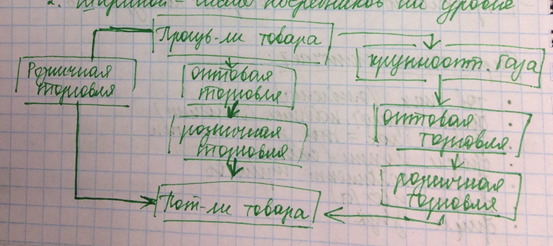 2. Шириной - число посредников на уровне
Произв-ли товара
крупноопт. база
Розничная
торговля
оптовая
торговля
розничная
торговля
оптовая
торговля
розничная
торговля
Пот-ли товара